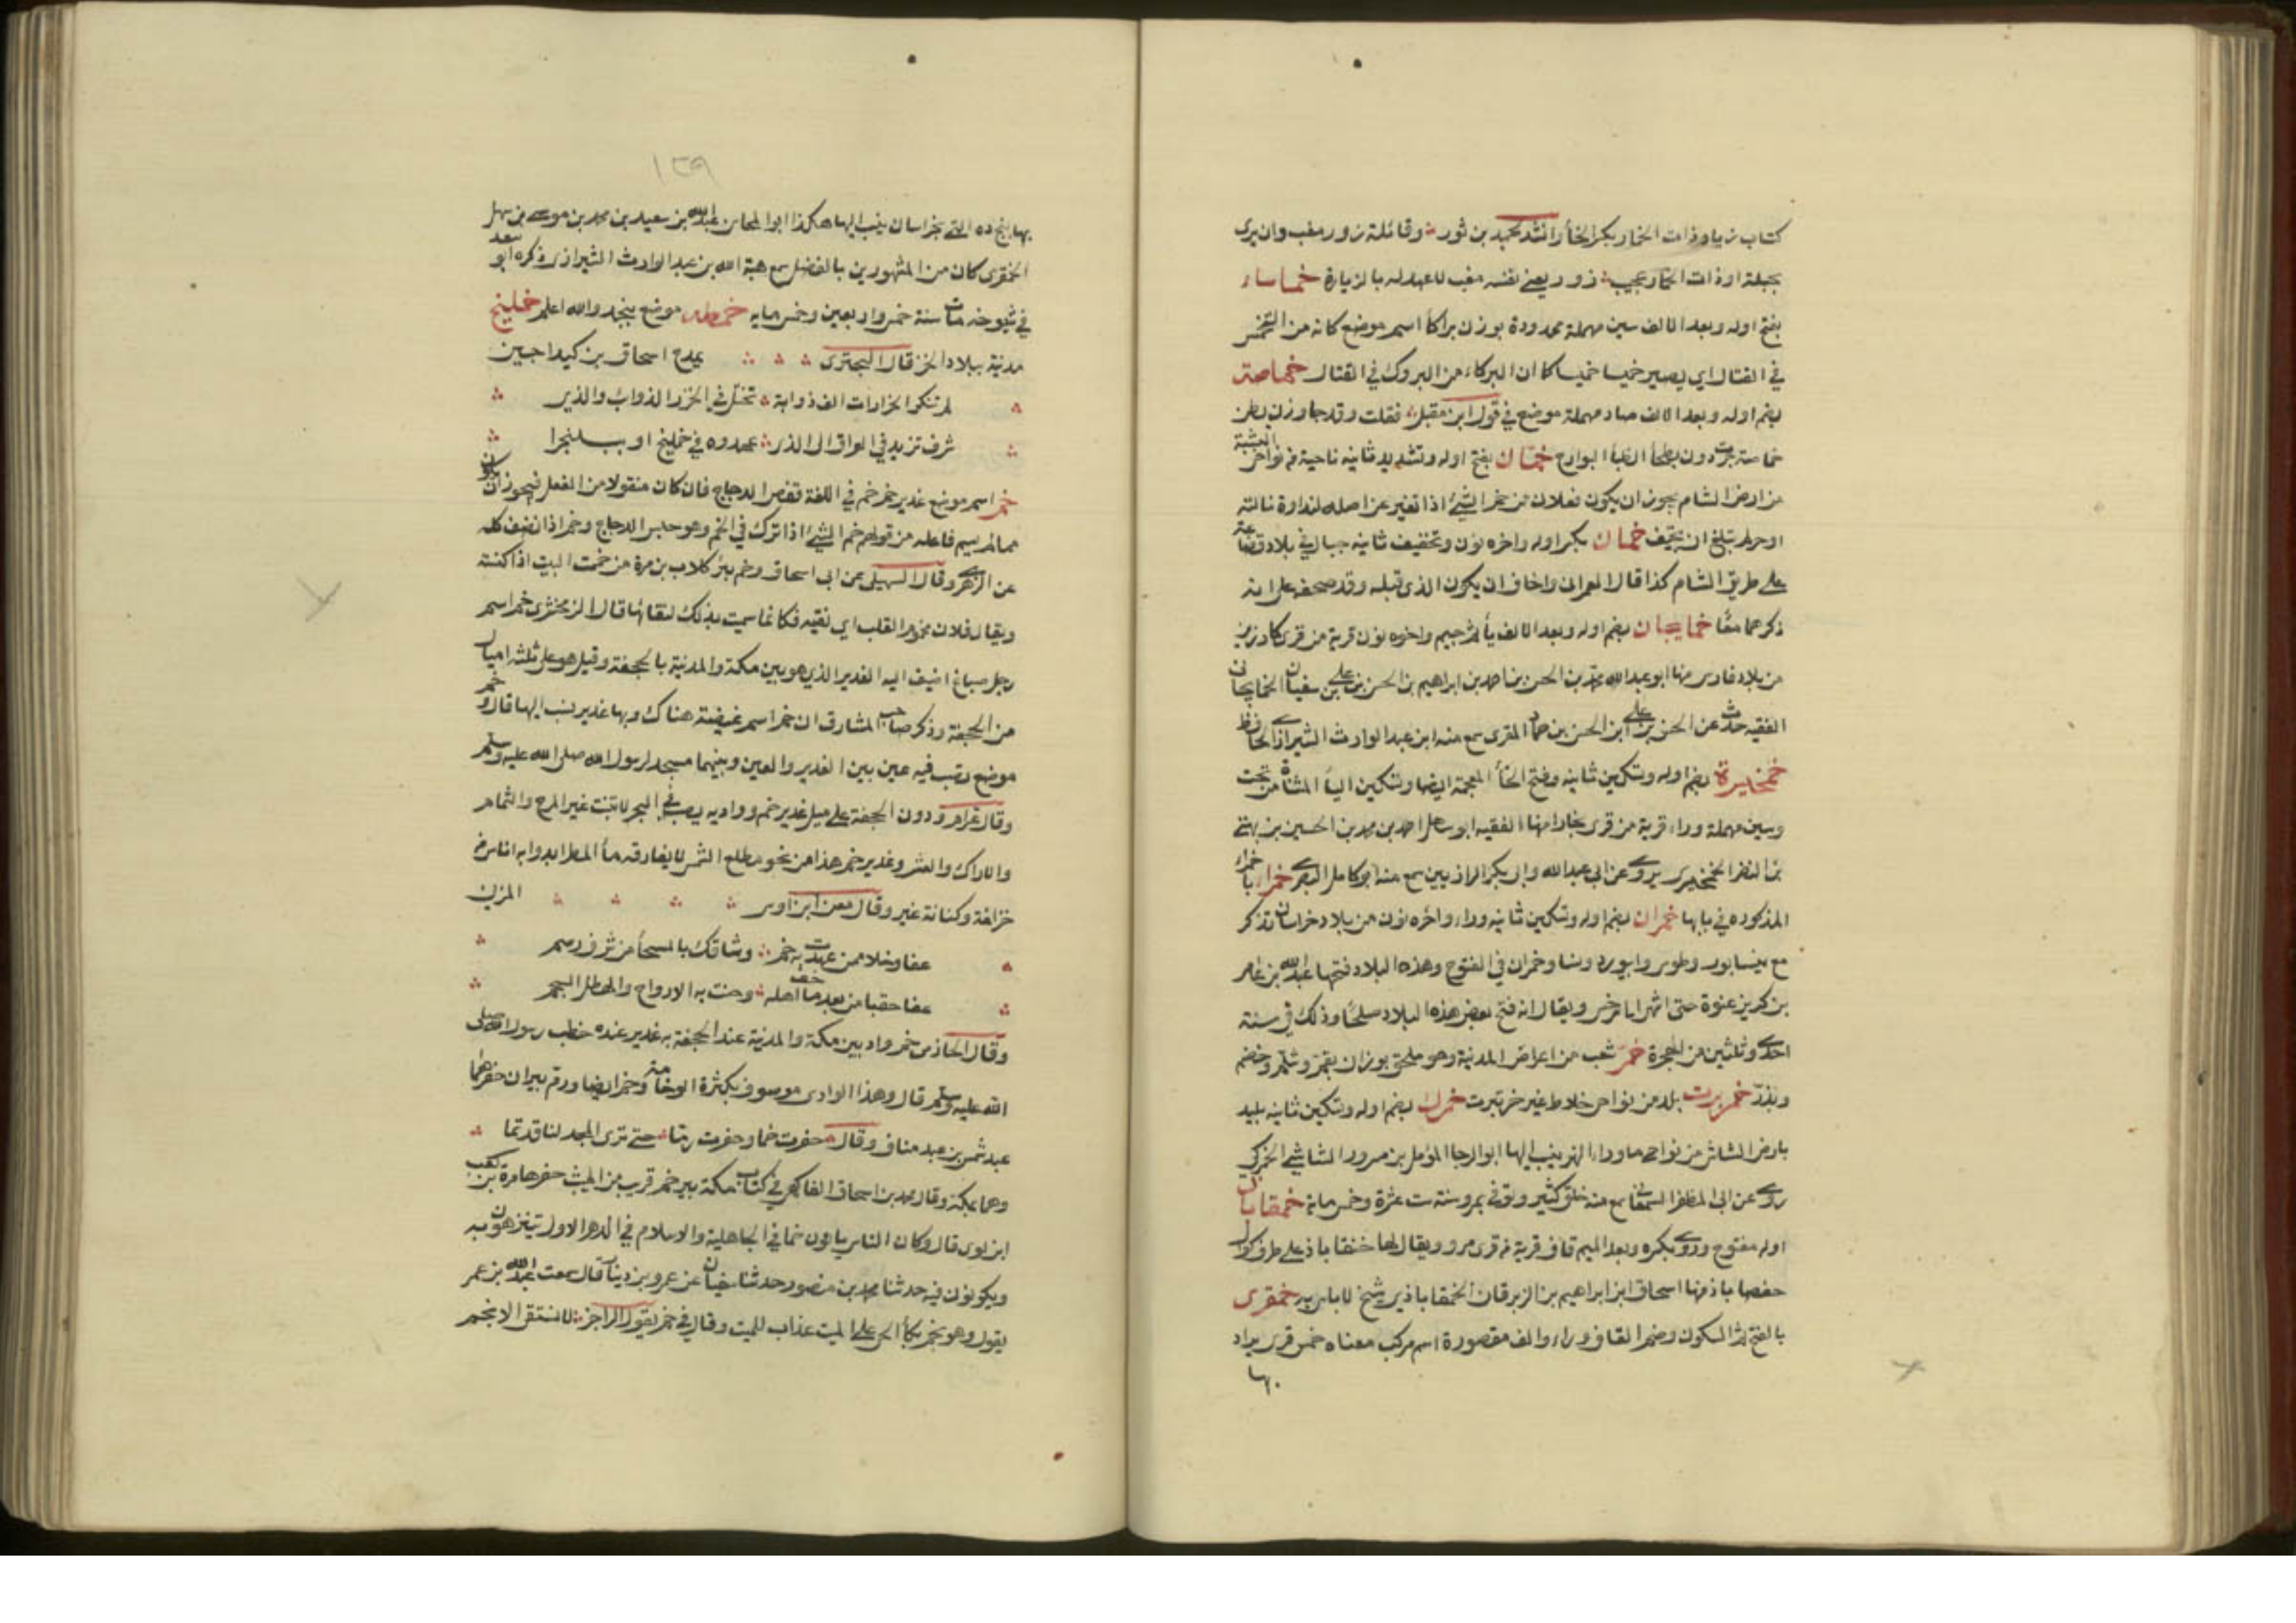 كتاب ن يا وذات الخمار بكسر الخاء وانشد لحميد بن ثور وقائلة زور مغب وان يرى
بحيلة او ذات الخمار عجيب زور يعنى نفسه مغب لا عهد له بالزيارة خماساء
بفتح اوله وبعد الالف سين مهملة ممدودة بوزن براكا اسم موضع كانه من التخمس
في القتال اي يصير خميسا خميسا كما ان البركاء من البروك في القتال خماصة
بضم اوله وبعد الالف صاد مهملة موضع في قول ابن مقبل فقلت وقد جاوزن بطن
خماصة جرت دون بطحاء الظباء البوارح خمان بفتح اوله وتشديد ثانيه ناحية من نواحي البثنية
من ارض الشام يجوز ان يكون فعلان من خم الشئ اذا تغير عن اصله لنداوة نالته
او حر لم تبلغ ان يجيف خمان بكسر اوله واخره نون وتخفيف ثانيه جبال في بلاد قضاعة
على طريق الشام كذا قال العمرانى واخاف ان يكون الذى قبله وقد صحفه على انه
ذكرهما معًا خمايجان بضم اوله وبعد الالف ياء ثم جيم واخره نون قرية من قرى كارزين
من بلاد فارس منها ابو عبد الله محمد بن الحسن بن احمد بن ابراهيم بن الحسن بن على بن سفيان الخمايجانى
الفقيه حدث عن الحسن بن على ابن الحسن بن حماد المقرى سمع منه ابن عبد الوارث الشيرازى الحافظ
خمخيسرة بضم اوله وتسكين ثانيه وفتح الخاء المعجمة ايضا وتسكين الياء المثناة من تحت
وسين مهملة وراء قرية من قرى بخارا منها الفقيه ابو سهل احمد بن محمد بن الحسين بن بهتى
بن النضر الخمخيسرى يروى عن ابى عبد الله وابى بكر الرازيين سمع منه ابو كامل البصرى خمراء باخمراء
المذكوره في بابها خمران بضم اوله وتسكين ثانيه وراء واخره نون من بلاد خراسان تذكر
مع نيسابور وطوس وابيورد ونسا وخمران في الفتوح وهذه البلاد فتحها عبد الله بن عامر
بن كريز عنوة حتى انتهى الى سرخس ويقال انه فتح بعض هذه البلاد صلحًا وذلك في سنة
احدى وثلثين من الهجرة خمر شعب من اعراض المدينة وهو ملحق بوزان بقم وشلم وخضم
وبذر خمربرت بلد من نواحى خلاط غير خرتبرت خمرك بضم اوله وتسكين ثانيه بليد
بارض الشاش من نواحى ماوراء النهر ينسب اليها ابو الرجا المؤمل بن مسرور الشاشي الخمركي
روى عن ابى المظفر السمعانى سمع منه خلق كثير وتوفى بمرو سنة ست عشرة وخمس ماية خمقاباذ
اوله مفتوح وروى بكسره وبعد الميم قاف قرية من قرى مرو ويقال لها خنقاباذ على طرف كوال
حفصاباذ منها اسحاق ابن ابراهيم بن الزبرقان الخمقاباذى شيخ لا باس به خمقرى
بالفتح ثم السكون وضم القاف وراء والف مقصورة اسم مركب معناه خمس قرى يراد
بها
١٣٩
بها پنج ده التى بخراسان ينسب اليها هكذا ابو المحاسن عبد الله بن سعيد بن محمد بن موسى بن سهل
الخمقرى كان من المشهورين بالفضل سمع هبة الله بن عبد الوارث الشيرازى ذكره ابو سعد
في شيوخه مات سنة خمس واربعين وخمس مايه خمطه موضع بنجد والله اعلم خمليخ
مدينة ببلاد الخزر قال البحترى يمدح اسحاق بن كنداجيق
لم تنكر الخزرات الف ذوابة تختل في الخزر الذوائب والذرى
شرف تزيد في العراق الى الذى عهدوه في خمليخ او ببلنجرا
خم اسم موضع غدير خم خم في اللغة قفص الدجاج فان كان منقولا من الفعل فيجوز ان يكون
مما لم يسم فاعله من قولهم خم الشئ اذا ترك في الخم وهو حبس الدجاج وخم اذا نظف كله
عن الزهرى وقال السهيلى عن ابى اسحاق وخم بئر كلاب بن مرة من خممت البيت اذا كنسته
ويقال فلان مخموم القلب اى نقيه فكانما سميت بذلك لنقائها قال الزمخشرى خم اسم
رجل صباغ اضيف اليه الغدير الذى هو بين مكة والمدينة بالجحفة وقيل هو على ثلثه اميال
من الجحفة وذكر صاحب المشارق ان خم اسم غيضة هناك وبها غدير نسب اليها قال وخم
موضع تصب فيه عين بين الغدير والعين وبينهما مسجد لرسول الله صلى الله عليه وسلم
وقال عرام ودون الجحفة على ميل غدير خم وواديه يصب في البحر لا ينبت غير المرخ والثمام
والاراك والعشر وغدير خم هذا من نحو مطلع الشمس لا يفارقه ماء المطر ابدا وبه اناس من
خزاعة وكنانة غير وقال معن ابن اوس المزنى
عفا وخلا ممن عهدت به خم وشاقك بالمسحاء من شرف رسم
عفا حقبا من بعد ما خف اهله وحنت به الارواح والهطل السجم
وقال الحازمى خم واد بين مكة والمدينة عند الجحفة به غدير عنده خطب رسول الله صلى
الله عليه وسلم قال وهذا الوادى موصوف بكثرة الوخامة وخم ايضا ورم بيران حفرهما
عبد شمس بن عبد مناف وقال حفرت خما وحفرت رما حتى ترى المجد لنا قد تما
وهما بمكة وقال محمد بن اسحاق الفاكهى في كتاب مكة بير خم قريب من الميثب حفرها مرة بن كعب
ابن لوى قال وكان الناس ياتون خما في الجاهلية والاسلام في الدهر الاول يتنزهون به
ويكونون فيه حدثنا محمد بن منصور حدثنا سفيان عن عمرو بن دينار قال سمعت عبد الله بن عمر
يقول وهو بخم بكاء الحى على الميت عذاب للميت وقال في خم يقول الراجز لا نستقى الا بخم